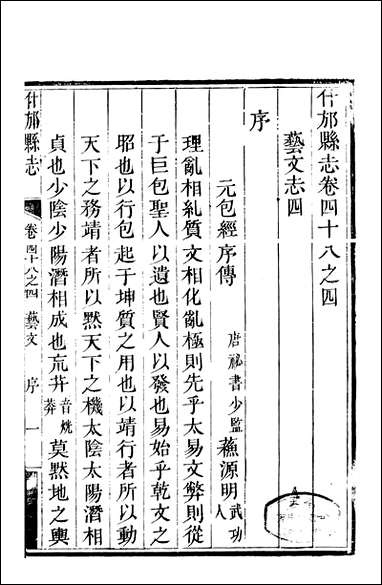 什邡縣志卷四十八之四
藝文志四
序
元包經序傳 唐祕書少監 蘇源明 武功人
理亂相糺質文相化亂極則先乎太易文弊則從
于巨包聖人以遺也賢人以發也易始乎乾文之
昭也以行包起于坤質之用也以靖行者所以動
天下之務靖者所以黙天下之機太陰太陽潛相
貞也少陰少陽潛相成也巟茻 音㠩莽 莫黙地之輿
什邡縣志 卷四十八之四 藝文 序 一